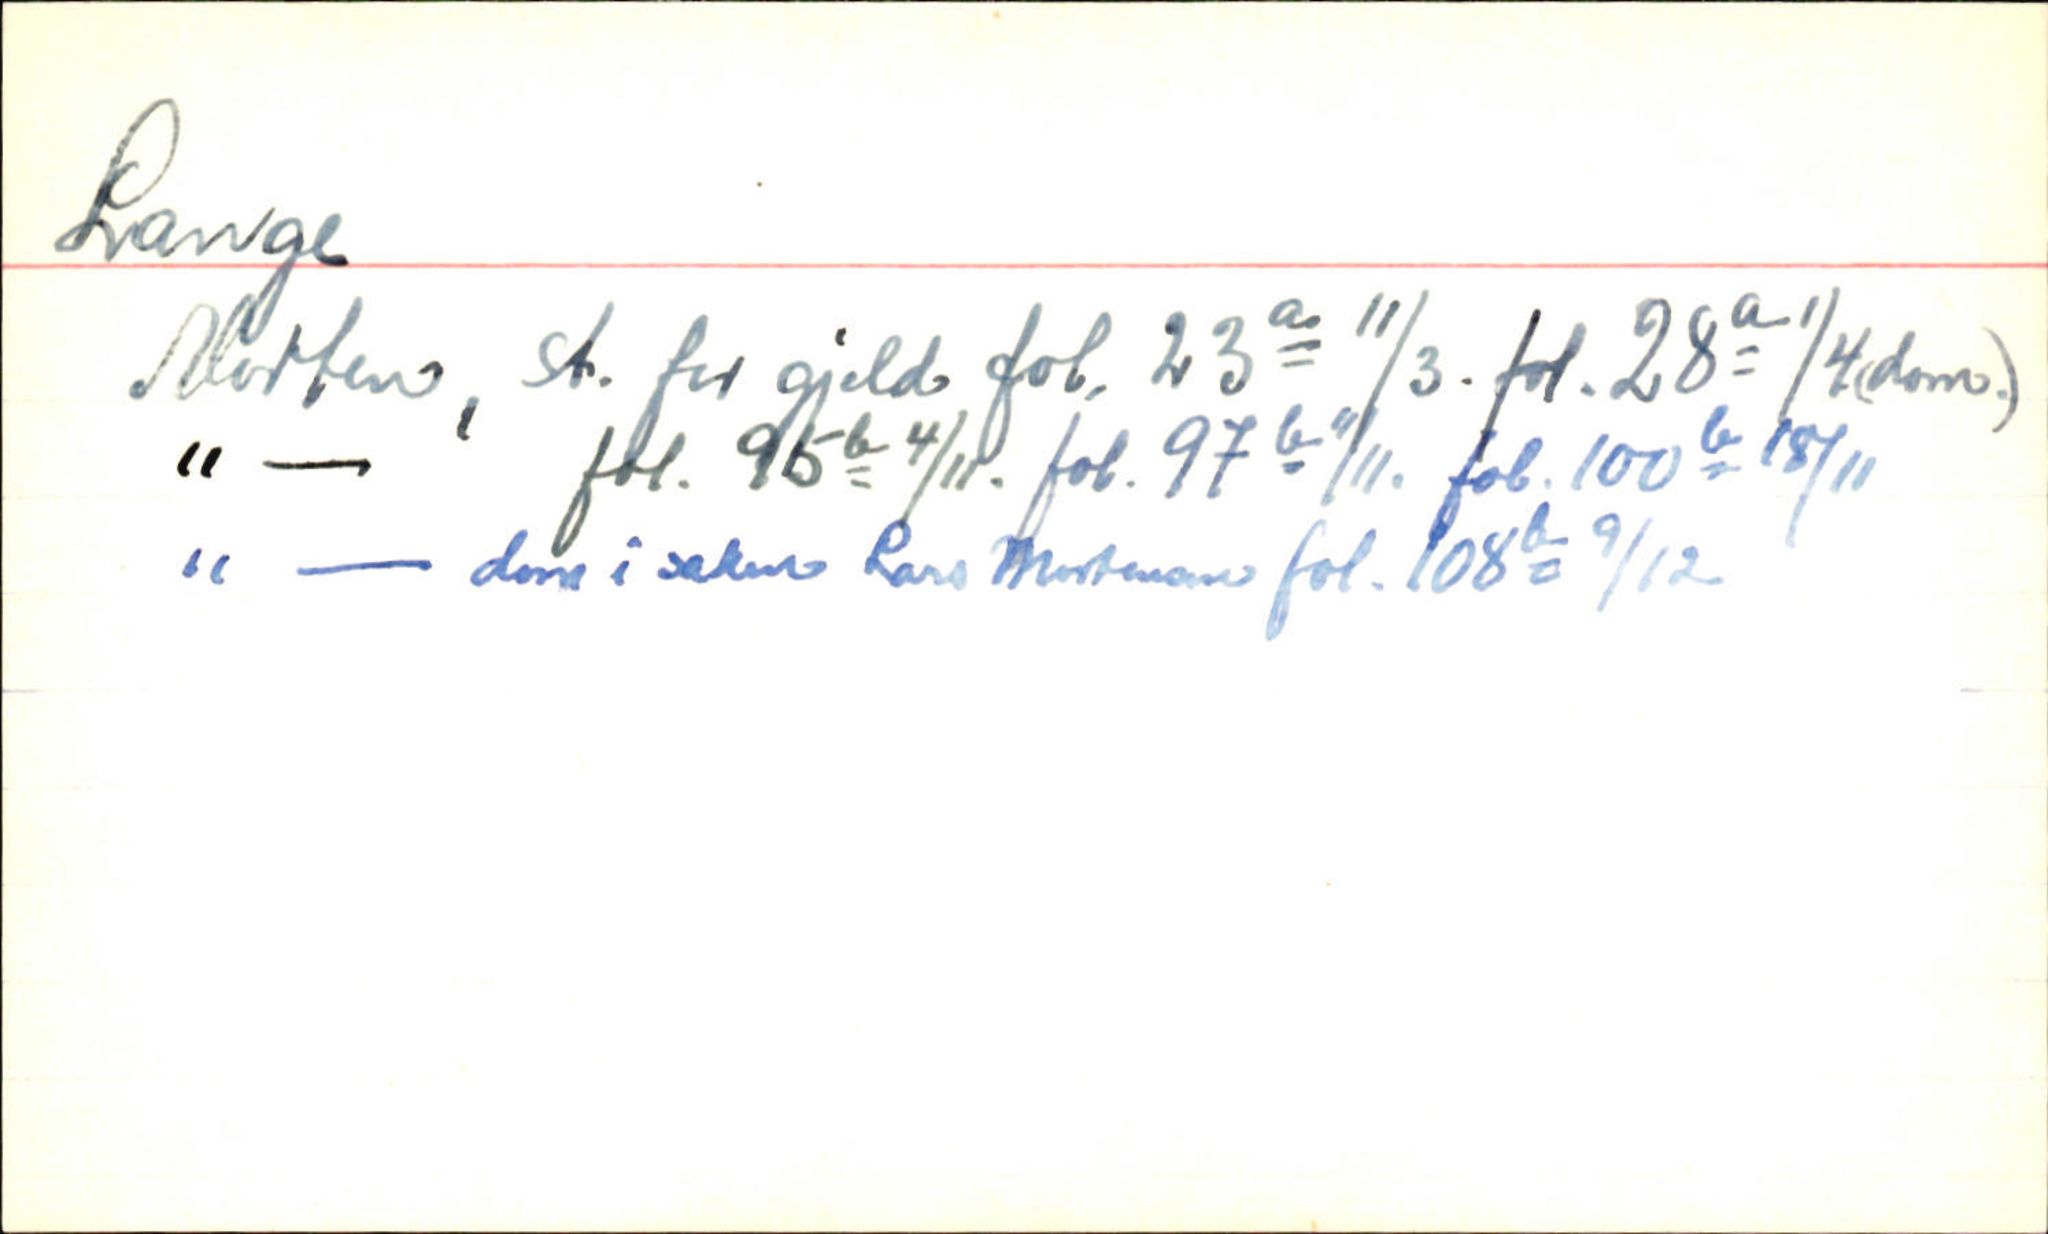 Lange
Morten, st. for gjeld fol. 23a 11/3. fol. 28a 1/4 (dom.)
" — fol. 95b 4/11. fol. 97b 11/11. fol. 100b 18/11
" — dom i saken Lars Mortensen fol. 108b 9/12